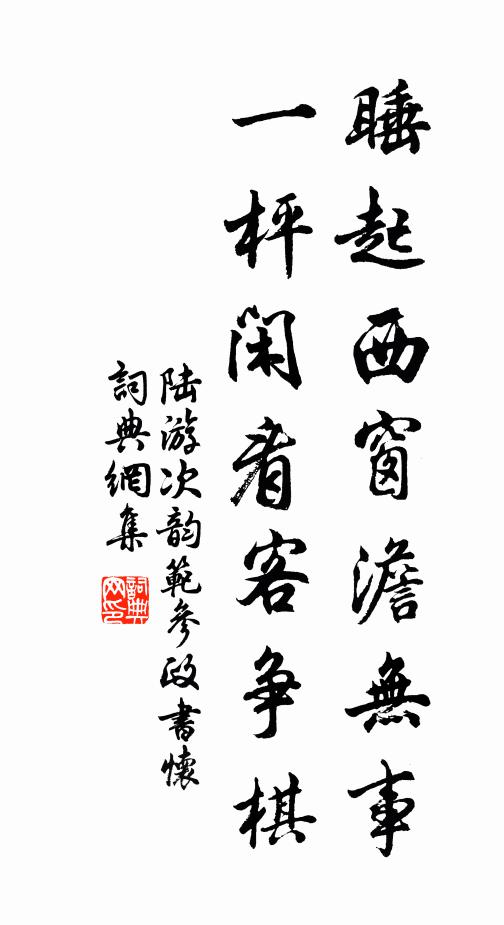 睡起西窗澹無事
一枰閑看客爭棋
陸游次韵範參政書懷
詞典網集
詞典網印